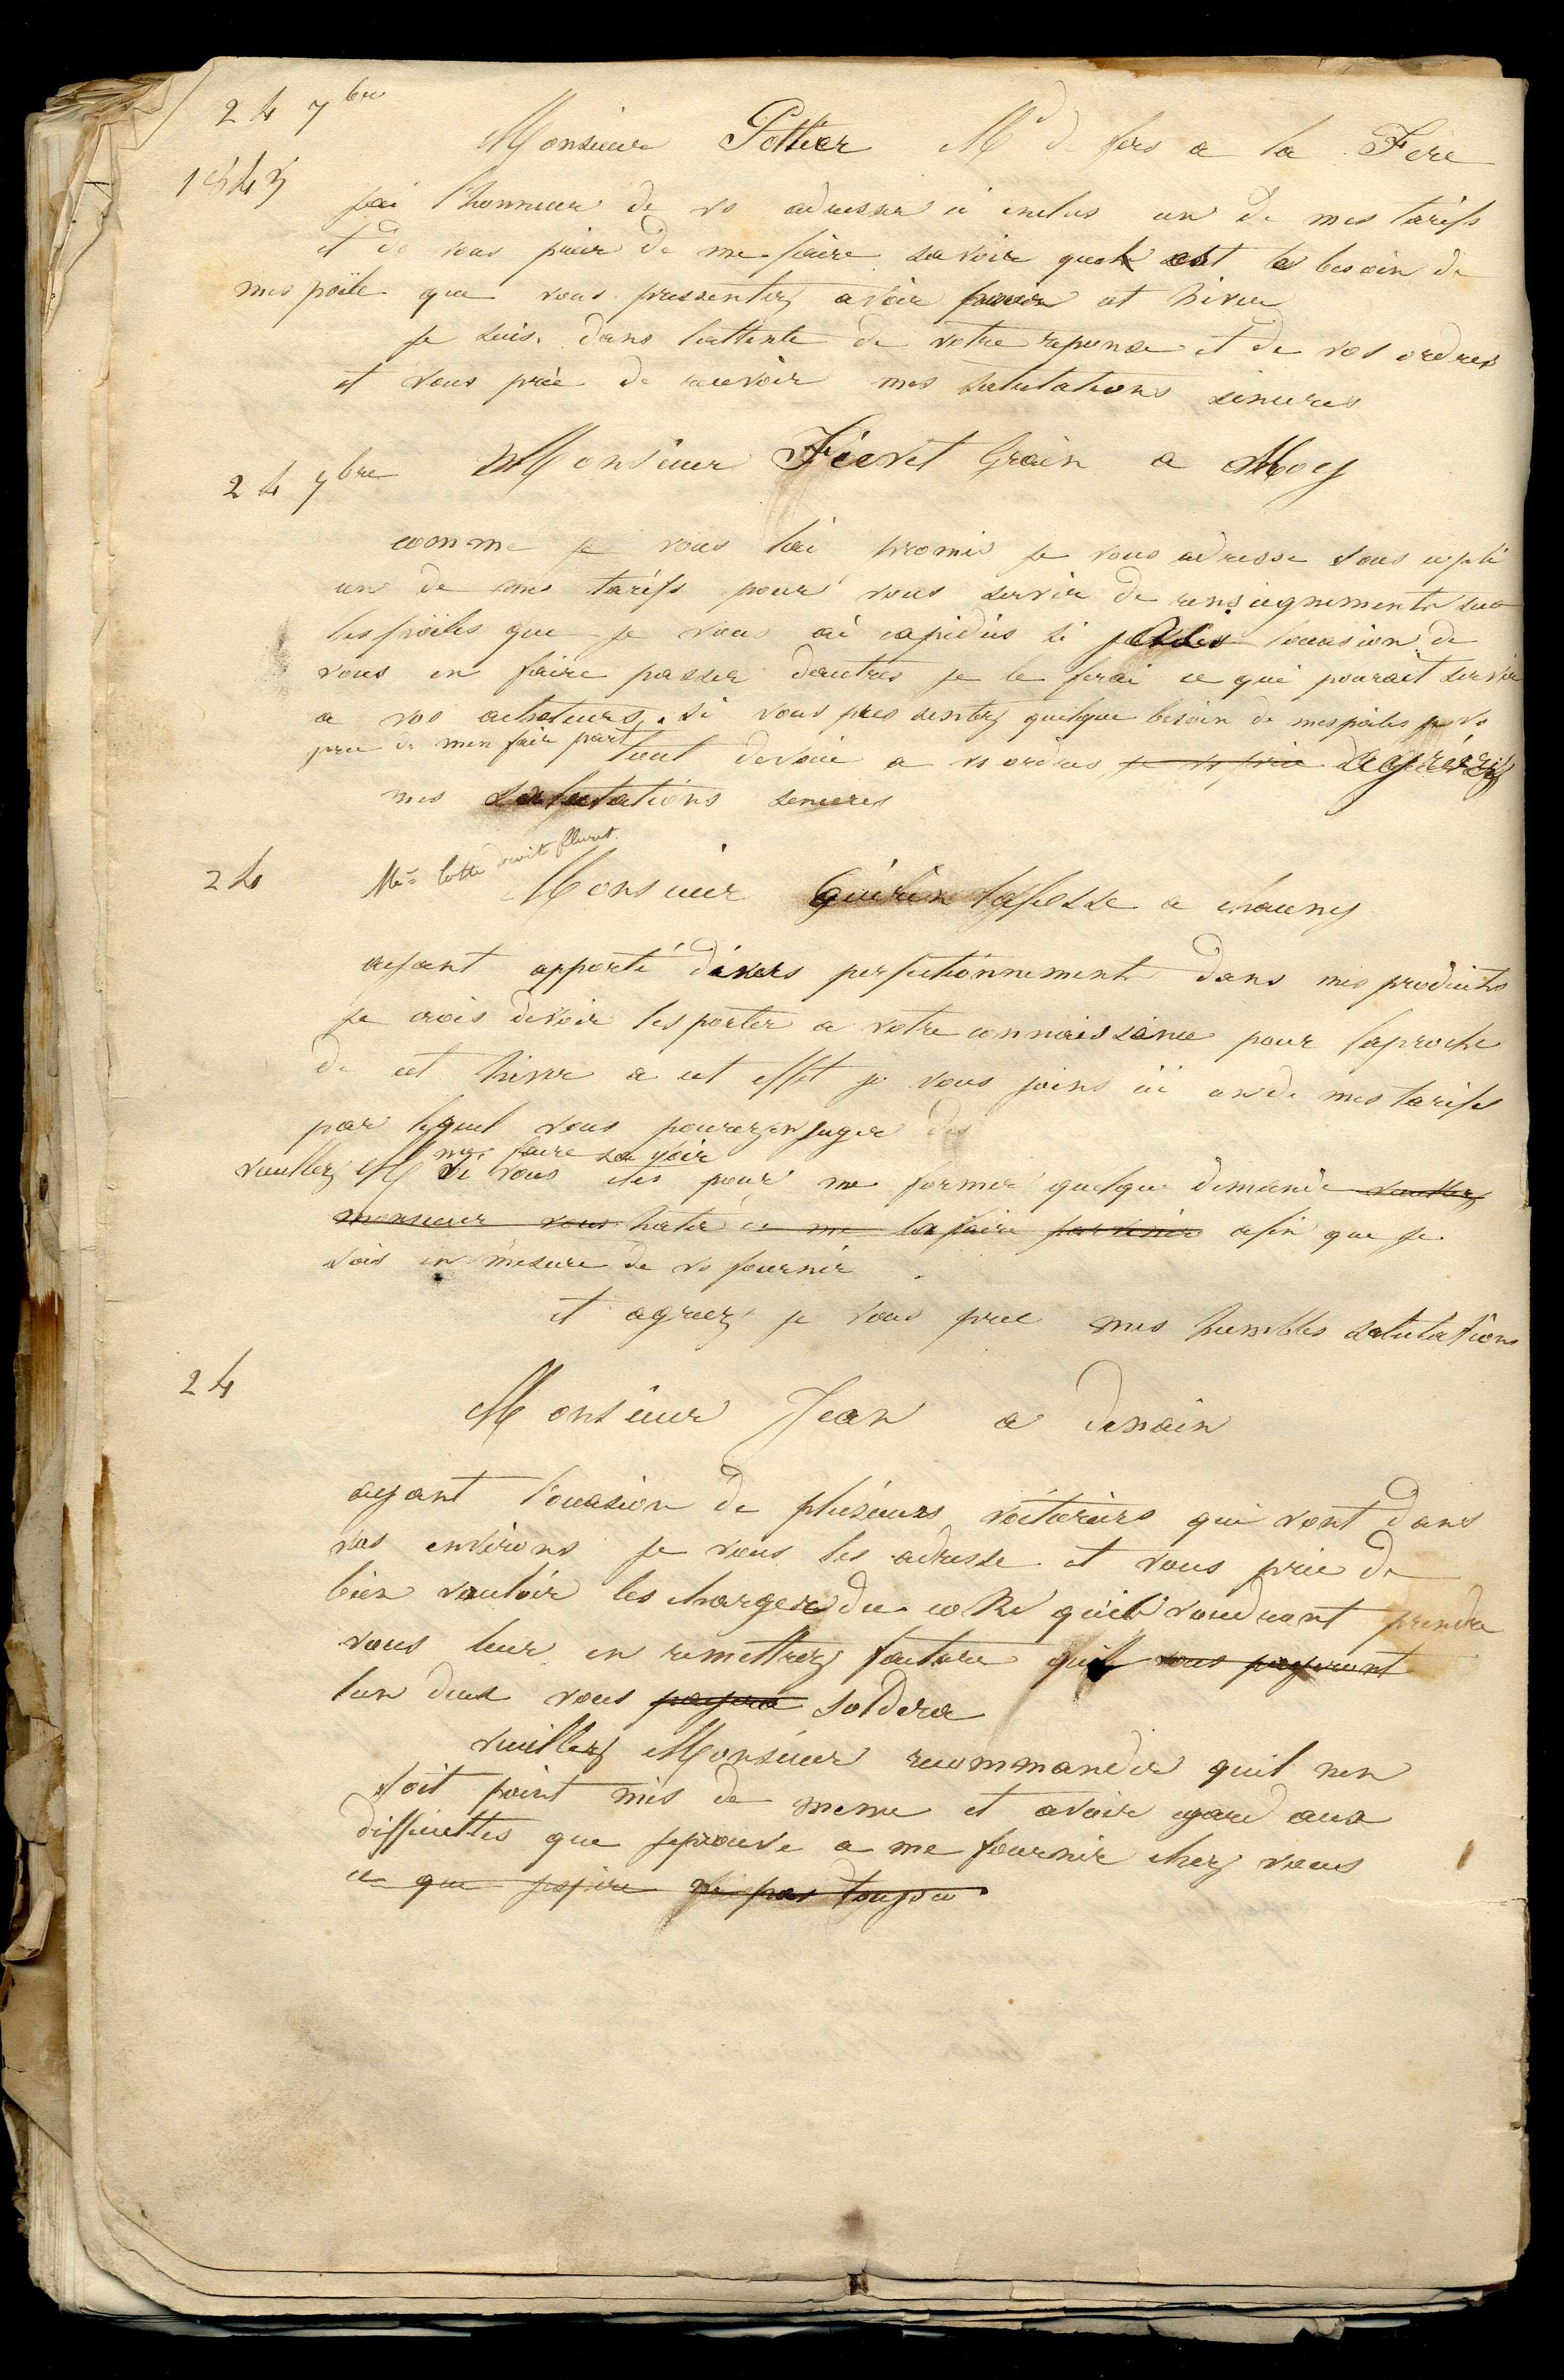 24 7bre
Monsieur Pottier Md d fers a la Fere
1843
jai lhonneur de vs adresser ci inclus un de mes tarifs
et de vous prier de me faire savoir quel est le besoin de
mes poële que vous pressentez avoir pour cet hiver
je suis dans lattente de votre reponse et de vos ordres
et vous prie de recevoir mes salutations sinceres
24 7bre Monsieur Fievet Grain a Moy
comme je vous lai promis je vous adresse sous ce pli
un de mes tarifs pour vous servir de renseignements sur
les poëles que je vous ai expediés si javais loccasion de
vous en faire passer dautres je le ferai ce qui pourait servir
a vos acheteurs. si vous pressentez quelque besoin de mes poëles je vs
prie de men faire part
tout devoué a vs ordres je vs prie dagréer
mes salutations senceres
24 Monsieur Guérin lafosse a chauny
ayant apporté divers perfectionnements dans mes produits
je crois devoir les porter a votre connaissance pour laproche
de cet hiver a cet effet je vous joins ici un de mes tarifs
par lequel vous pourez en juger des
me faire savoir
veuillez M si vous etes pour me former quelque demande veuillez
monsieur vous hater de me la faire parvenir afin que je
sois en mesure de vs fournir
et agreez je vous prie mes humbles salutations
24
Monsieur Jean a denain
ayant l'occasion de plusieurs voituriers qui vont dans
vos environs je vous les adresse et vous prie de
bien vouloir les charger du coke quils voudront prendre
vous leur en remettrez facture quil vous payeront
lun deux vous payera soldera
veuillez Monsieur recommander quil nen
soit point mis de menu et avoir egard aux
difficultes que jeprouve a me fournir chez vous
ce que jespere pas toujou